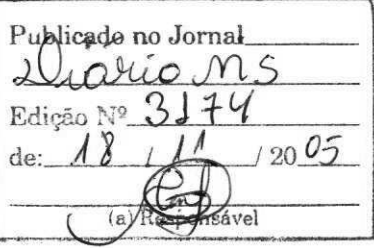 Publicado no Jornal
Diário MS
Edição Nº 3174
de: 18 / 11 / 2005
(a) Responsável